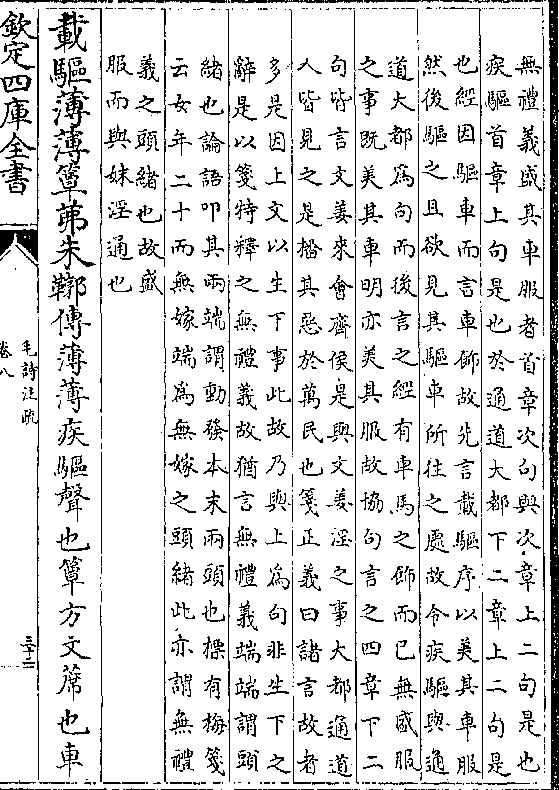 無禮義盛其車服者首章次句與次章上二句是也
疾驅首章上句是也於通道大都下二章上二句是
也經因驅車而言車飾故先言載驅序以美其車服
然後驅之且欲見其驅車所往之處故令疾驅與通
道大都為句而後言之經有車馬之飾而已無盛服
之事既美其車明亦美其服故協句言之四章下二
句皆言文姜來會齊侯是與文姜淫之事大都通道
人皆見之是播其惡於萬民也箋正義曰諸言故者
多是因上文以生下事此故乃與上為句非生下之
辭是以箋特釋之無禮義故猶言無禮義端端謂頭
緒也論語叩其兩端謂動發本末兩頭也摽有梅箋
云女年二十而無嫁端為無嫁之頭緒此亦謂無禮
義之頭緒也故盛
服而與妹淫通也
載驅薄薄簟茀朱鞹傳薄薄疾驅聲也簟方文蓆也車
欽定四庫全書
毛詩注疏
卷八
三十二